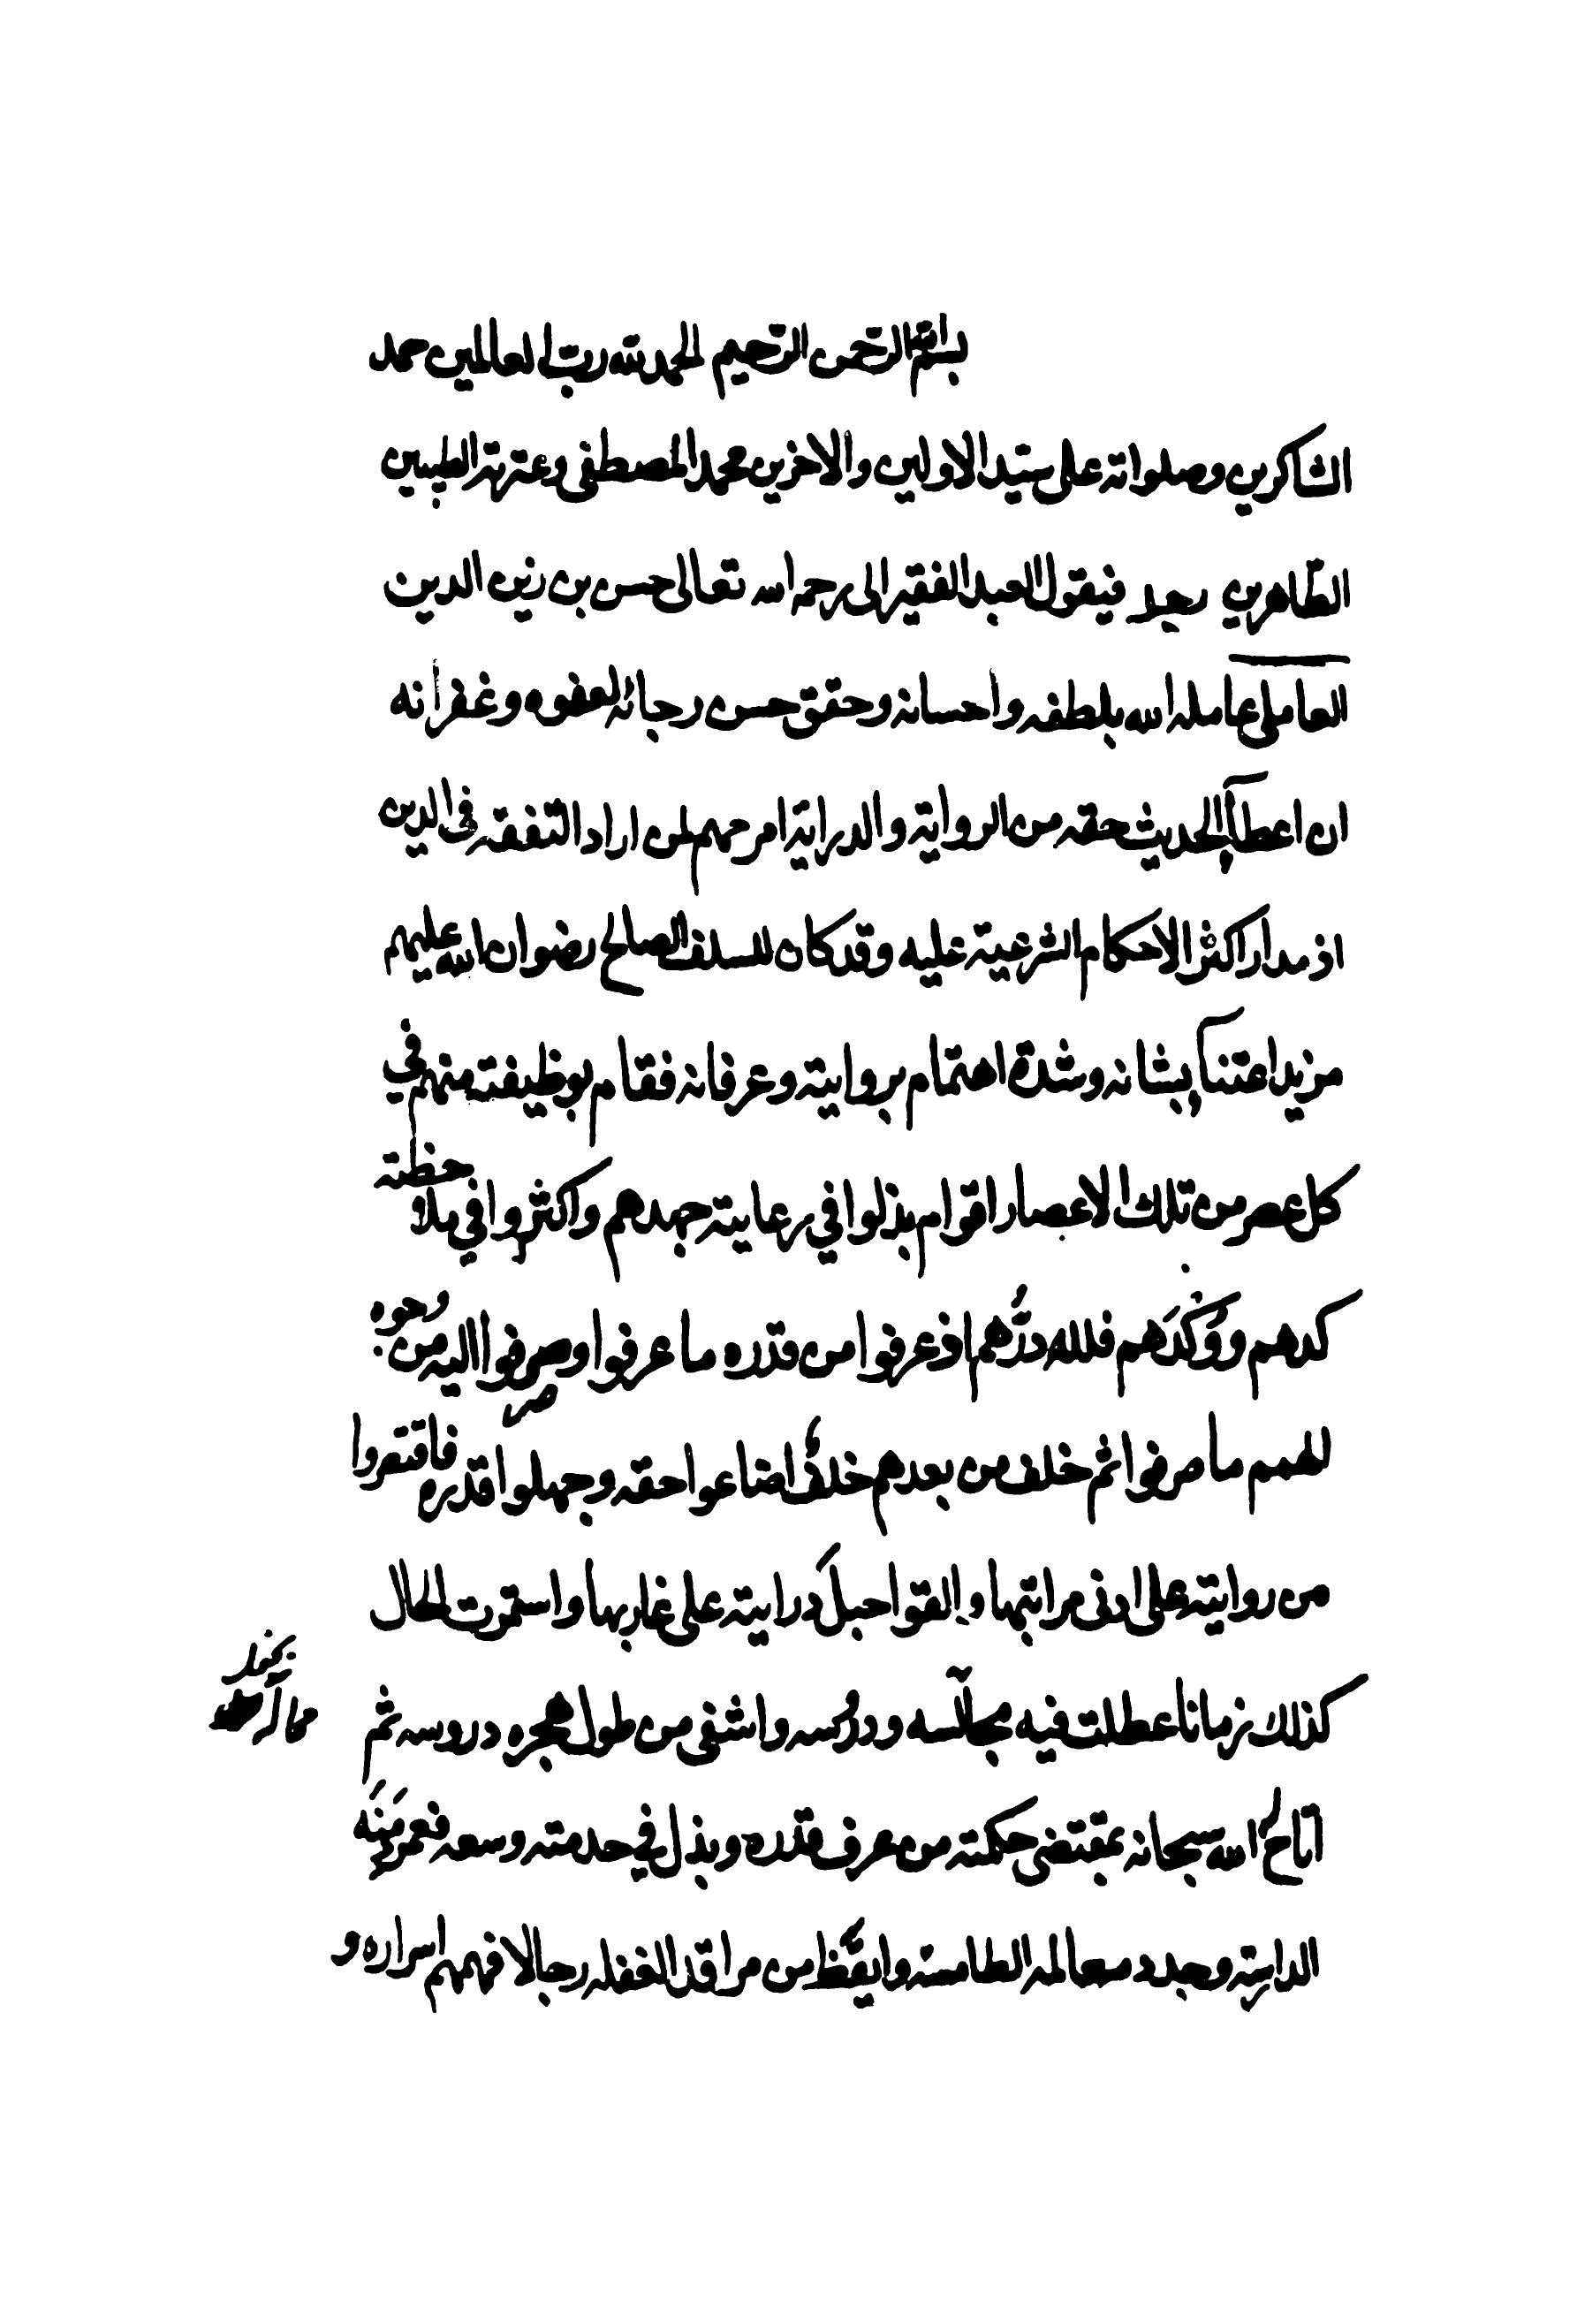 بسم الله الرحمن الرحيم الحمد لله رب العالمين حمد
الشاكرين وصلواته على سيد الاولين والاخرين محمد المصطفى وعترته الطيبين
الطاهرين وبعد فيقول العبد الفقير الى رحمه الله تعالى حسن بن زين الدين
العاملي عامله الله بلطفه واحسانه وحقق حسن رجائه لعفوه وغفرانه
ان اعطآء الحديث حقه من الرواية والدراية امر مهم لمن اراد التفقه في الدين
اذ مدار اكثر الاحكام الشرعية عليه وقد كان للسلف الصالح رضوان الله عليهم
مزيد اعتنآء بشانه وشدة اهتمام بروايته وعرفانه فقام بوظيفته منهم في
كل عصر من تلك الاعصار اقوام بذلوا في رعايته جهدهم واكثروا في ملاحظته
كدهم ووكدهم فلله درهم اذ عرفوا من قدره ما عرفوا وصرفوا اليه من وجوه
الهمم ما صرفوا ثم خلف من بعدهم خلف اضاعوا حقه وجهلوا قدره فاقتصروا
من روايته على ادنى مراتبها والقوا حبل درايته على غاربها واستمرت الحال
كذلك زمانا عطلت فيه مجالسه ودرسه واشفى من طول هجره دروسه ثم
اتاح الله سبحانه بمقتضى حكمته من عرف قدره وبذل في خدمته وسعه فعمر منه
الداثرة وجدد معالمه الطامسة وايقظ من مراقد الغفله رجالا فهمهم اسراره و